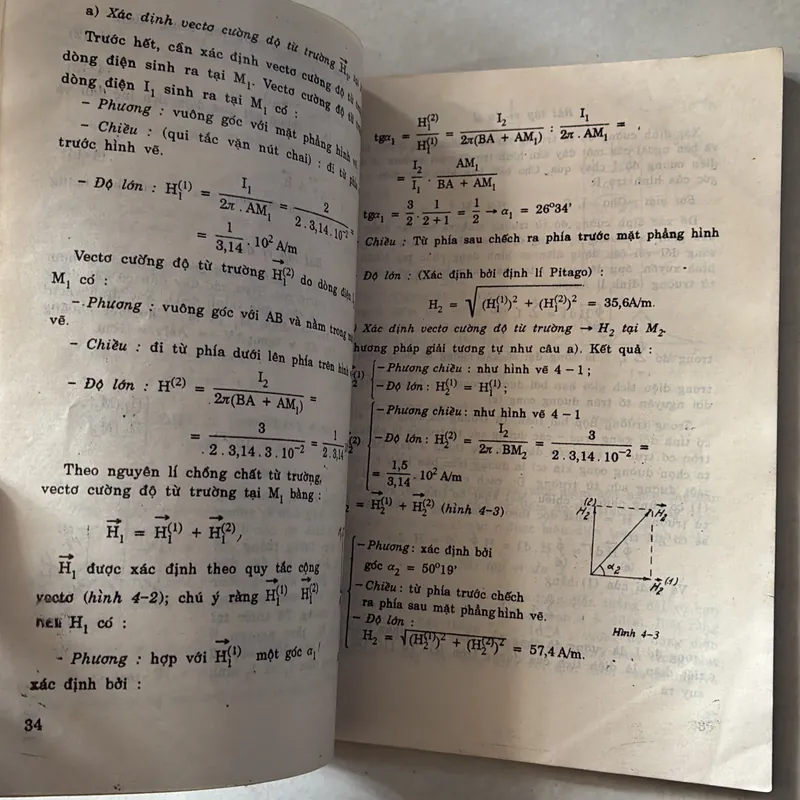 a) Xác định vectơ cường độ từ trường H⃗₁
Trước hết, cần xác định vectơ cường độ từ
dòng điện sinh ra tại M₁. Vectơ cường độ từ
dòng điện I₁ sinh ra tại M₁ có :
– Phương : vuông góc với mặt phẳng hình vẽ.
– Chiều : (qui tắc vặn nút chai) : đi từ
trước hình vẽ.
– Độ lớn : H₁⁽¹⁾ = I₁ / 2π . AM₁ = 2 / 2 . 3,14 . 10⁻² =
= 1 / 3,14 . 10² A/m
Vectơ cường độ từ trường H⃗₁⁽²⁾ do dòng điện
M₁ có :
– Phương : vuông góc với AB và nằm trong
vẽ.
– Chiều : đi từ phía dưới lên phía trên hình
– Độ lớn : H⁽²⁾ = I₂ / 2π(BA + AM₁) =
= 3 / 2 . 3,14 . 3 . 10⁻² = 1 / 2 . 3,14
Theo nguyên lí chồng chất từ trường,
vectơ cường độ từ trường tại M₁ bằng :
H⃗₁ = H⃗₁⁽¹⁾ + H⃗₁⁽²⁾,
H⃗₁ được xác định theo quy tắc cộng
vectơ (hình 4-2); chú ý rằng H⃗₁⁽¹⁾ H⃗₁⁽²⁾
nên H₁ có :
– Phương : hợp với H⃗₁⁽¹⁾ một góc α₁
xác định bởi :
34
tgα₁ = H₁⁽²⁾ / H₁⁽¹⁾ = I₂ / 2π(BA + AM₁) : I₁ / 2π . AM₁ =
= I₂ / I₁ . AM₁ / BA + AM₁
tgα₁ = 3/2 . 1 / 2 + 1 = 1/2 → α₁ = 26°34′
Chiều : Từ phía sau chếch ra phía trước mặt phẳng hình
Độ lớn : (Xác định bởi định lí Pitago) :
H₂ = √(H₁⁽¹⁾)² + (H₁⁽²⁾)² = 35,6A/m.
) Xác định vectơ cường độ từ trường → H₂ tại M₂.
hương pháp giải tương tự như câu a). Kết quả :
– Phương chiều : như hình vẽ 4 – 1 ;
– Độ lớn : H₂⁽¹⁾ = H₁⁽¹⁾ ;
– Phương chiều : như hình vẽ 4 – 1
– Độ lớn : H₂⁽²⁾ = I₂ / 2π . BM₂ = 3 / 2 . 3,14 . 10⁻² =
= 1,5 / 3,14 . 10² A/m
= H⃗₂⁽¹⁾ + H⃗₂⁽²⁾ (hình 4-3)
– Phương : xác định bởi
góc α₂ = 50°19′
– Chiều : từ phía trước chếch
ra phía sau mặt phẳng hình vẽ.
– Độ lớn :
H₂ = √(H₂⁽¹⁾)² + (H₂⁽²⁾)² = 57,4A/m.
H⃗₂⁽²⁾ H⃗₂
α₂
H⃗₂⁽¹⁾
Hình 4-3